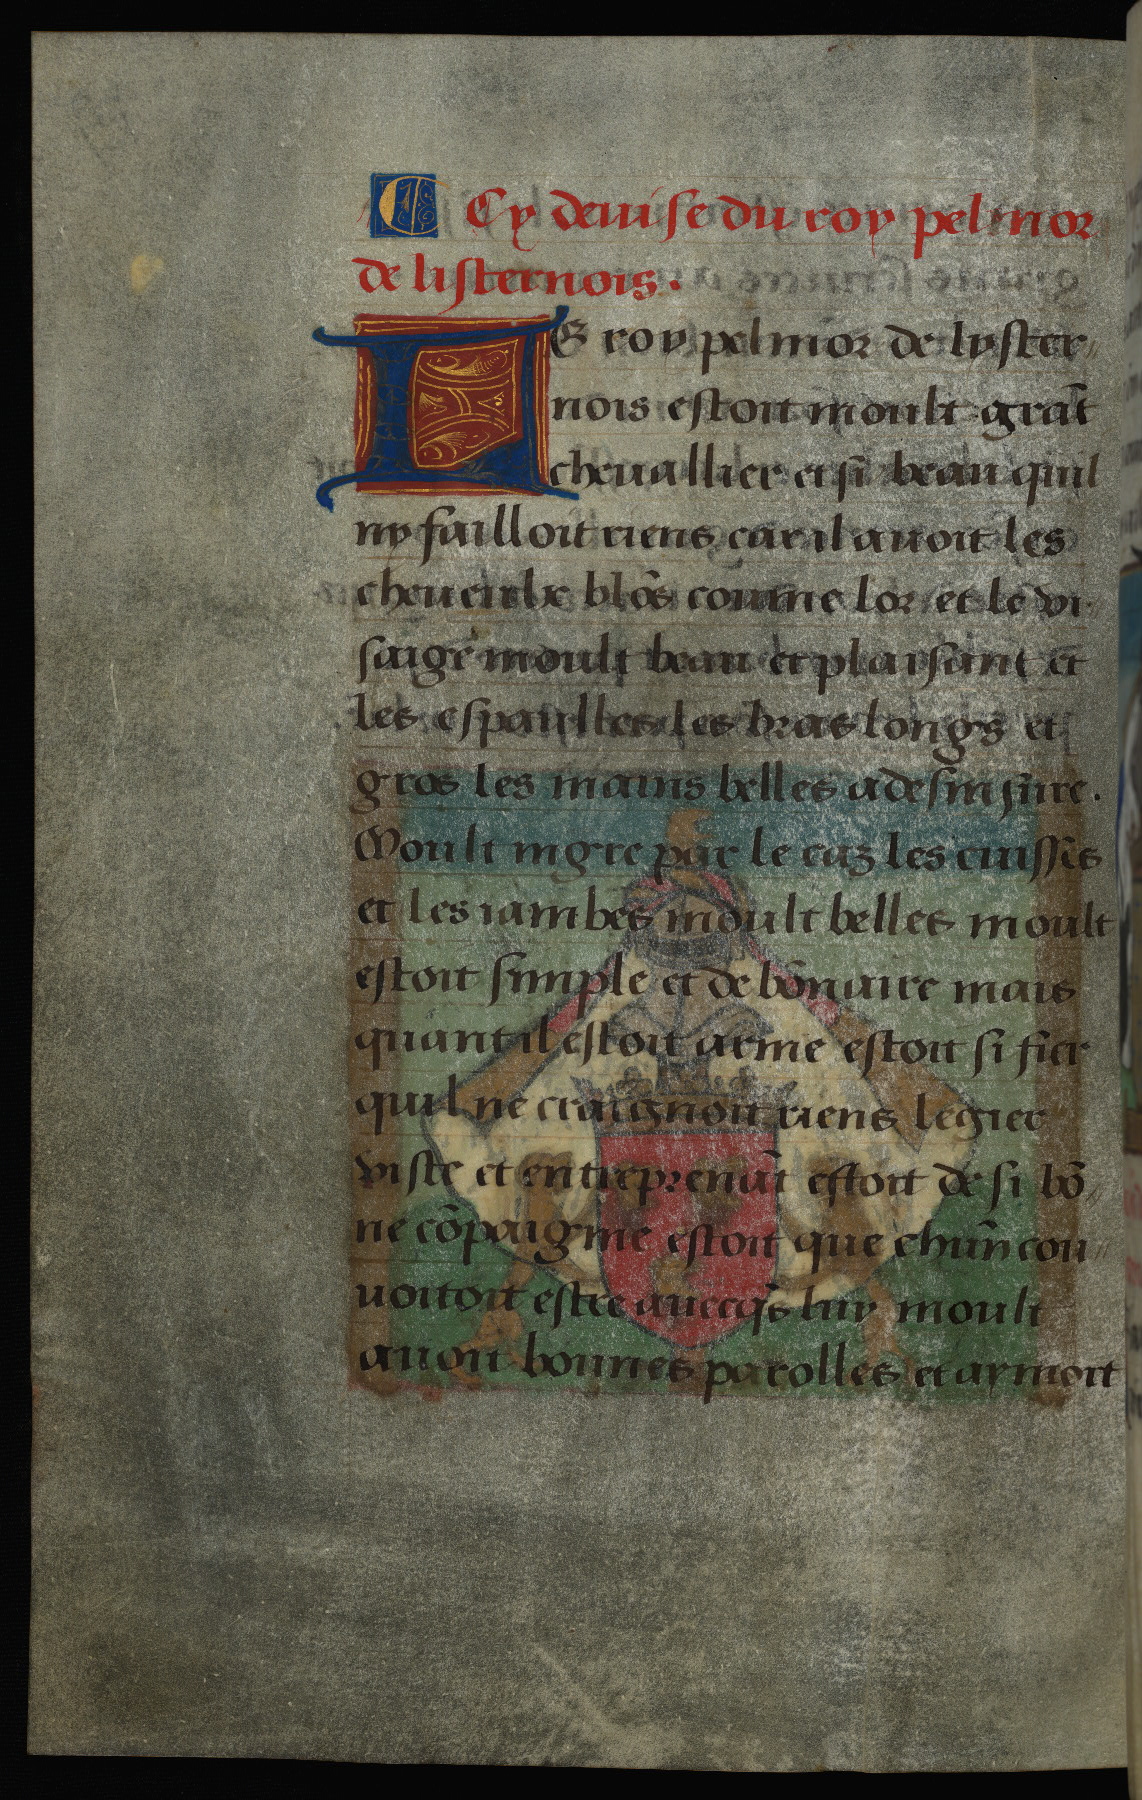 C Cy deuise du roy pelinor
de listernois.
LE roy pelinor de lyster
nois estoit moult grāt
cheuallier et si beau quil
ny failloit riens car il auoit les
cheueulx blōs comme lor et le vi
saige moult beau et plaisant et
les espaulles les bras longs et
gros les mains belles a desmesure.
Moult mgre par le cuz les cuisses
et les iambes moult belles moult
estoit simple et de bōnaire mais
quant il estoit arme estoit si fier
quil ne craignoit riens legier
viste et entreprenāt estoit de si bō
ne cōpaignie estoit que chūn cou
uoitoit estre auecqs luy moult
auoit bonnes parolles et aymoit